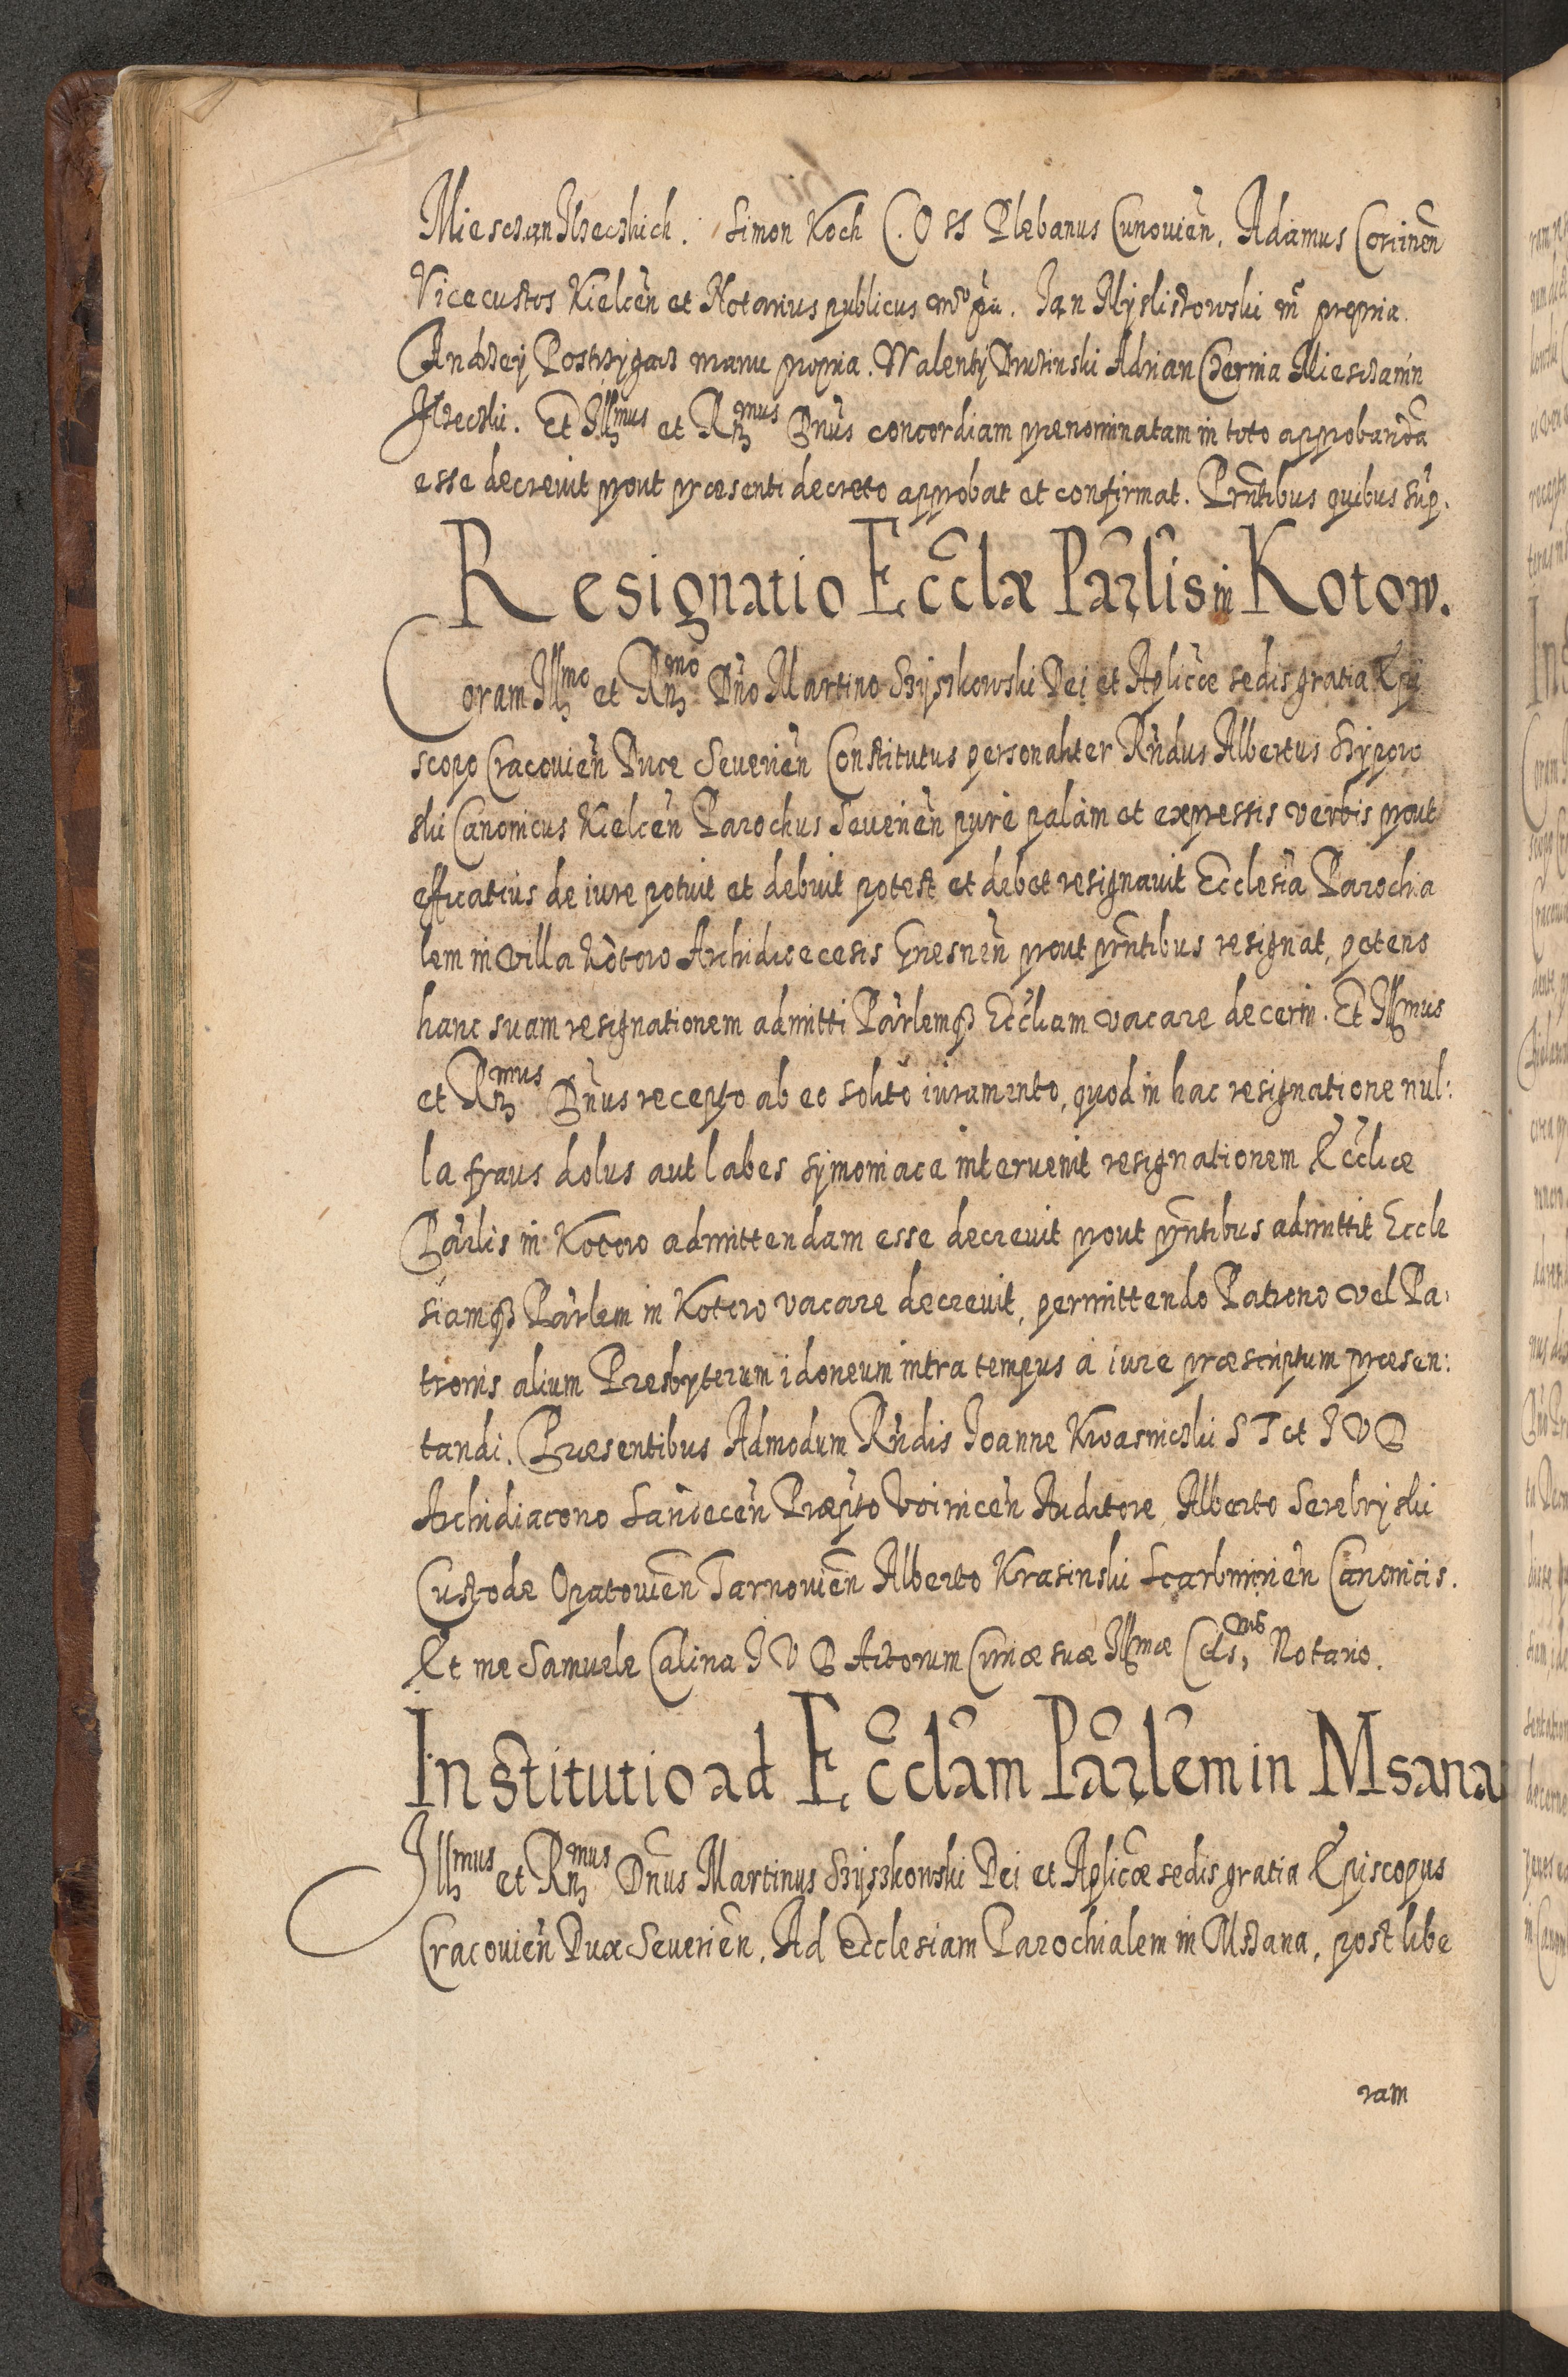 Miesczan Ilzeczkich. Simon Koch C. O ss Plebanus Cunouien̄, Adamus Corinen̄
Vicecustos Kielcen̄ et Notarius publicus mp̄p̄a. Jan Mysliszowski m̄ propria.
Andrzey Postrzygacz manu propria. Walenty Druzinski Adrian Czernia Miesczanin
Ilzeczki. Et Illmus et Rnmus Dnūs concordiam prenominatam in toto approbandā
esse decreuit prout præsenti decreto approbat et confirmat. Prn̄tibus quibus sup̄.
Resignatio Ecc̄læ Parlis̄ in Kotow.
Coram Illmo et Rnmo Dn̄o Martino Szyszkowski Dei et Aplicæ sedis gratia Epi
scopo Cracouien̄ Duce Seuerien̄ Constitutus personaliter Rn̄dus Albertus Szypow
ski Canonicus Kielcen̄ Parochus Seuerien̄ pure palam et expressis verbis prout
efficatius de iure potuit et debuit potest et debet resignauit Ecclesiā Parochia
lem in villa Kotow Archidioecesis Gnesnen̄ prout prn̄tibus resignat, petens
hanc suam resignationem admitti Parlemq̄ Eccliam vacare decerni. Et Illmus
et Rnmus Dn̄us recepto ab eo solito iuramento, quod in hac resignatione nul:
la fraus dolus aut labes symoniaca interuenit resignationem Eccliæ
Parlis in Kotow admittendam esse decreuit prout prn̄tibus admittit Eccle
siamq̄ Parlem in Kotow vacare decreuit, permittendo Patrono vel Pa:
tronis alium Presbyterum idoneum intra tempus a iure præscriptum præsen:
tandi. Præsentibus Admodum Rn̄dis Joanne Kwasnicki S T et I V D
Archidiacono Sandecen̄ Præpto Voinicen̄ Auditore, Alberto Serebryski
Custode Opatouien̄ Tarnouien̄ Alberto Krasinski Scarbimirien̄ Canonicis.
Et me Samuele Calina I V D Actorum Curiæ suæ Illmæ Cels: nis Notario.
Institutio ad Ecc̄lam Parlem in Msana
Illmus et Rnmus Dn̄us Martinus Szyszkowski Dei et Aplicæ sedis gratia Episcopus
Cracouien̄ Dux Seuerien̄. Ad Ecclesiam Parochialem in Mszana, post libe
ram